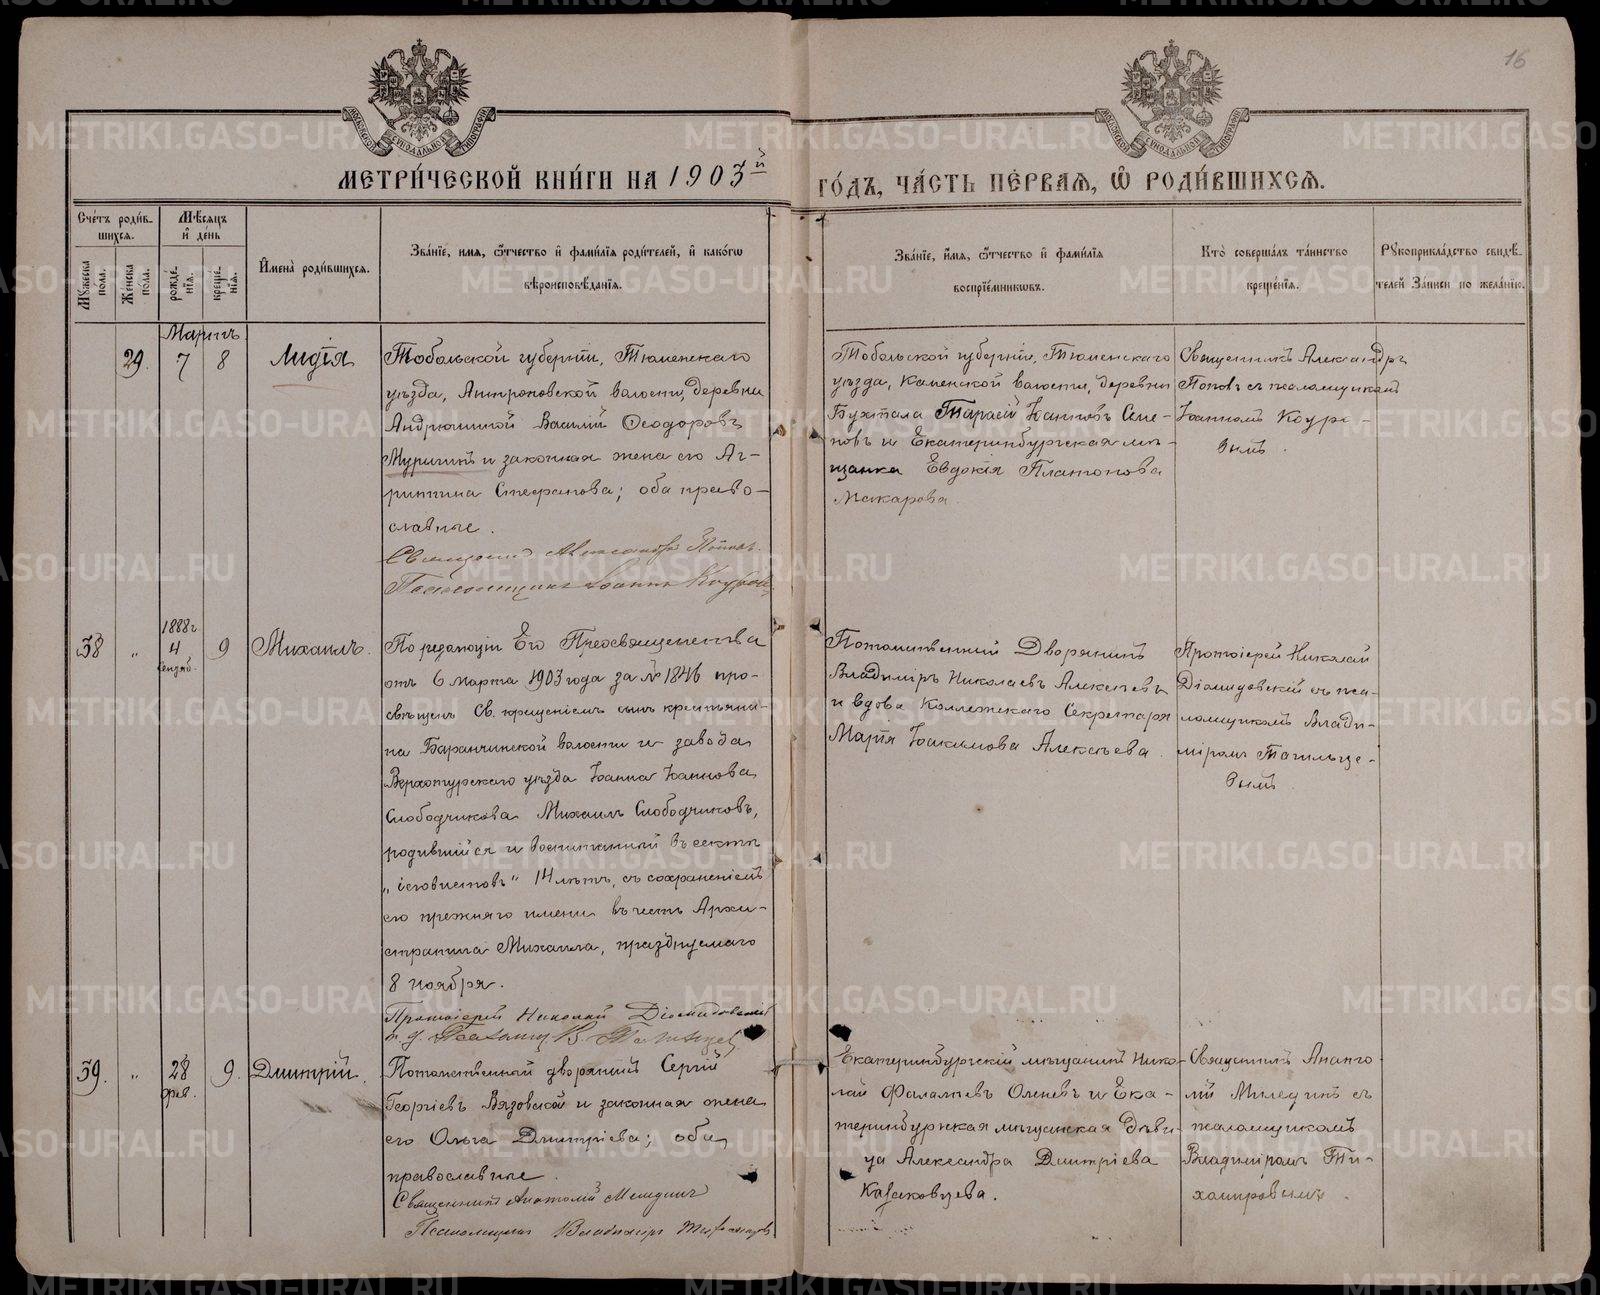 16
МОСКОВСКОЙ СѴНОДАЛЬНОЙ ТИПОГРАФІИ
МОСКОВСКОЙ СѴНОДАЛЬНОЙ ТИПОГРАФІИ
МЕТРИ́ЧЕСКОЙ КНИ́ГИ НА 1903й ГО́ДЪ, ЧА́СТЬ ПЕ́РВАЯ, Ѡ РОДИ́ВШИХСЯ.
Сче́тъ роди́в-
шихся.
Му́жеска пола.
Же́нска по́ла.
Мѣ́сяцъ
и де́нь
рожде́нія.
креще́нія.
Имена̀ роди́вшихся.
Зва́ніе, имя, ѻ҆́тчество и҆ фами́лія роди́телей, и҆ како́гѡ
вѣроисповѣ́данія.
Зва́ніе, и҆́мя, ѻ҆́тчество и҆ фами́лія
воспріе́мниковъ.
Кто̀ соверша́лъ та́инство
креще́нія.
Рукоприкла́дство свидѣ́-
телей за́писи по жела́нію.
Мартъ
29.
7
8
Лидія
Тобольской губерніи, Тюменскаго
уѣзда, Антроповской волости, деревни
Андрюшиной Василій Ѳеодоровъ
Муригинъ и законная жена его Аг-
рипина Стефанова; оба право-
славные.
Священникъ Александръ Поповъ.
Псаломщикъ Іоаннъ
Тобольской губерніи, Тюменскаго
уѣзда, Каменской волости, деревни
Бухтала Тарасій Іоанновъ Семе-
новъ и Екатеринбургская мѣ-
щанка Евдокія Платонова
Макарова.
Священникъ Александръ
Поповъ съ псаломщикомъ
Іоанномъ
38
"
1888 г.
4
Сентяб.
9
Михаилъ.
По резолюціи Его Преосвященства
отъ 6 Марта 1903 года за № 1846 про-
свѣщенъ Св. крещеніемъ сынъ крестьяни-
на Баранчинской волости и завода
Верхотурскаго уѣзда Іоанна Іоаннова
Слободчикова Михаилъ Слободчиковъ,
родившійся и воспитанный въ сектѣ
"іеговистовъ" 14 лѣтъ, съ сохраненіемъ
его прежняго имени въ честь Архи-
стратига Михаила, празднуемаго
8 ноября.
Протоіерей Николай Діомидовскій
и. д. Псаломщ. В.
Потомственный Дворянинъ
Владиміръ Николаевъ Алексѣевъ
и вдова Коллежскаго Секретаря
Марія Іоакимова Алексѣева.
Протоіерей Николай
Діомидовскій съ пса-
ломщикомъ Влади-
міромъ Тагильце-
вымъ.
39.
"
28
фев.
9.
Дмитрій.
Потомственный дворянинъ Сергій
Георгіевъ Вязовской и законная жена
его Ольга Дмитріева; оба
православные.
Священникъ Анатолій Меледин
Псаломщикъ Владиміръ Тихомировъ
Екатеринбургскій мѣщанинъ Нико-
лай Фалалеевъ Оленевъ и Ека-
теринбургская мѣщанская дѣви-
ца Александра Дмитріева
Казаковцева.
Священникъ Анато-
лій Меледин съ
псаломщикомъ
Владиміромъ Ти-
хомировымъ.
METRIKI.GASO-URAL.RU